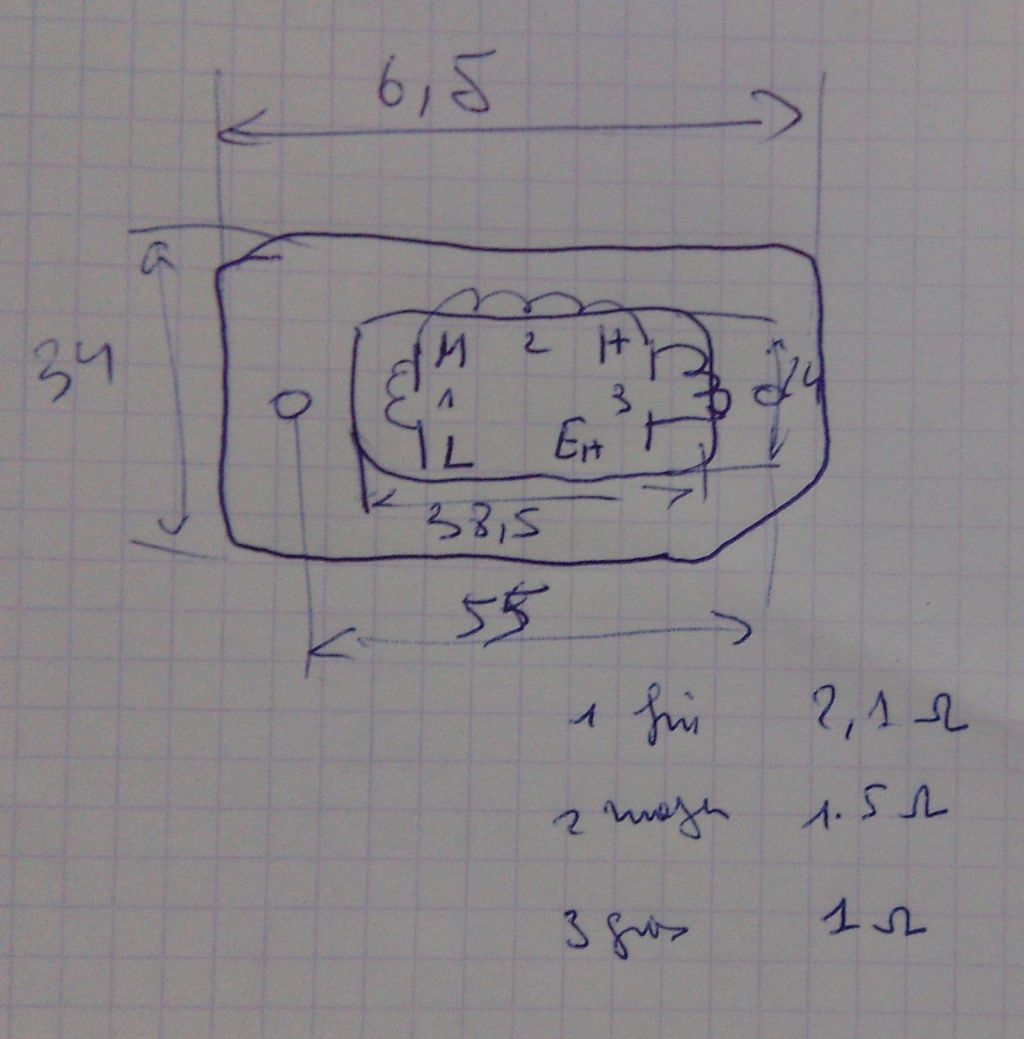 6,5
34
M 2 H
1 3 24
L EH
38,5
55
1 fin 2,1 Ω
2 moyen 1.5 Ω
3 gros 1 Ω